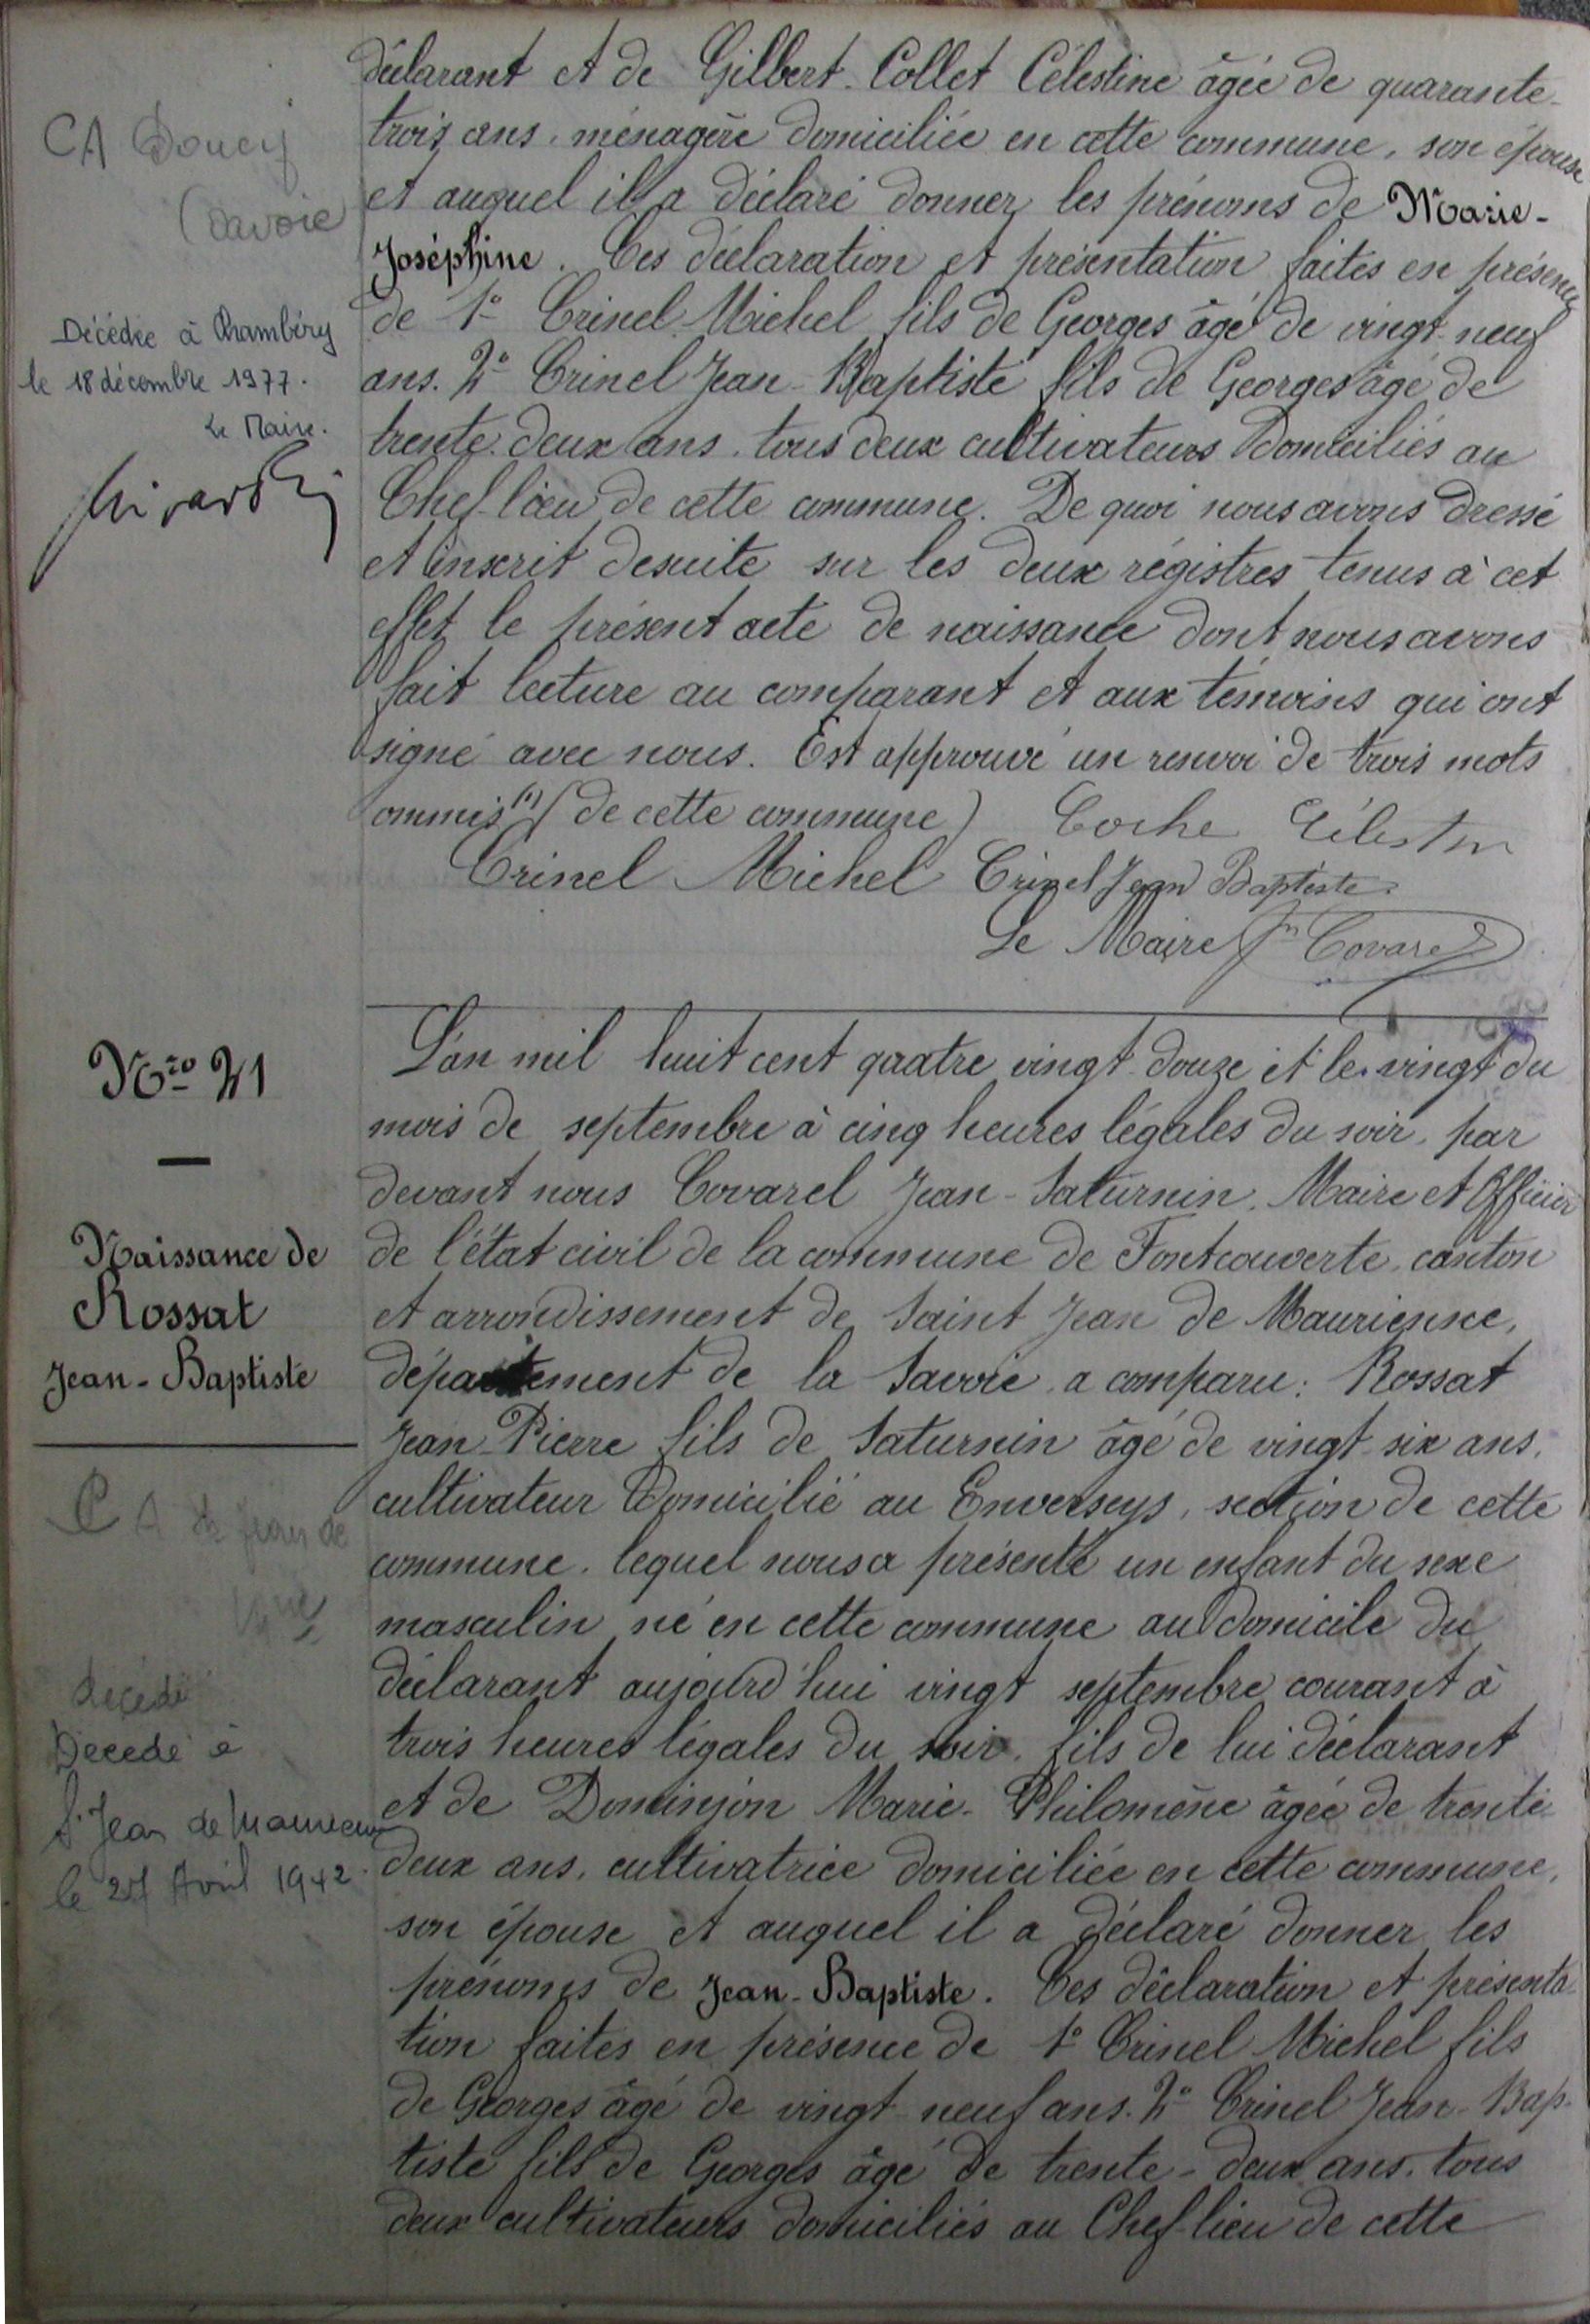 déclarant et de Gilbert-Collet Célestine âgée de quarante-
trois ans, ménagère domiciliée en cette commune, son épouse
et auquel il a déclaré donner les prénoms de Marie-
Joséphine. Ces déclaration et présentation faites en présence
de 1º Crinel Michel fils de Georges âgé de vingt-neuf
ans. 2º Crinel Jean-Baptiste fils de Georges âgé de
trente-deux ans, tous deux cultivateurs domiciliés au
Chef-lieu de cette commune. De quoi nous avons dressé
et inscrit desuite sur les deux régistres tenus à cet
effet le présent acte de naissance dont nous avons
fait lecture au comparant et aux témoins qui ont
signé avec nous. Est approuvé un renvoi de trois mots
ommis (1) (de cette commune) Coche Célestin
Crinel Michel Crinel Jean Baptiste
Le Maire Jn Covarel
CA Doucy
(Savoie
Décédée à Chambéry
le 18 décembre 1977.
Le Maire.
Nro 21
Naissance de
Rossat
Jean-Baptiste
L'an mil huit cent quatre vingt-douze et le vingt du
mois de septembre à cinq heures légales du soir, par
devant nous Covarel Jean-Saturnin, Maire et Officier
de l'état civil de la commune de Fontcouverte, canton
et arrondissement de Saint Jean de Maurienne,
département de la Savoie, a comparu: Rossat
Jean-Pierre fils de Saturnin âgé de vingt-six ans,
cultivateur domicilié au Enverseys, section de cette
commune, lequel nous a présenté un enfant du sexe
masculin né en cette commune au domicile du
déclarant aujourd'hui vingt septembre courant à
trois heures légales du soir, fils de lui déclarant
et de Dominjon Marie-Philomène âgée de trente-
deux ans, cultivatrice domiciliée en cette commune,
son épouse et auquel il a déclaré donner les
prénoms de Jean-Baptiste. Ces déclaration et présenta-
tion faites en présence de 1º Crinel Michel fils
de Georges âgé de vingt-neuf ans. 2º Crinel Jean-Bap-
tiste fils de Georges âgé de trente-deux ans, tous
deux cultivateurs domiciliés au Chef-lieu de cette
CA St Jean de
Mne
décédé
Décédé à
St Jean de Maurienne
le Avril 1942.